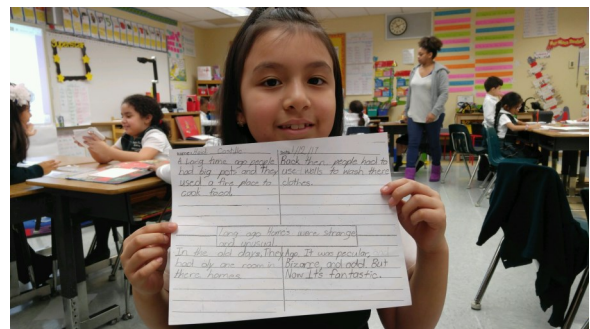 A Long time ago people
had big pots and They
used a fire place to
cook food.
Back then people had to
use wells to wash there
clothes.
Long ago Homes were strange
and unusual
In the old days, They
had oly one room in
there homes.
Ago It was peculiar,
Bizarre, and odd. But
Now It's fantastic.